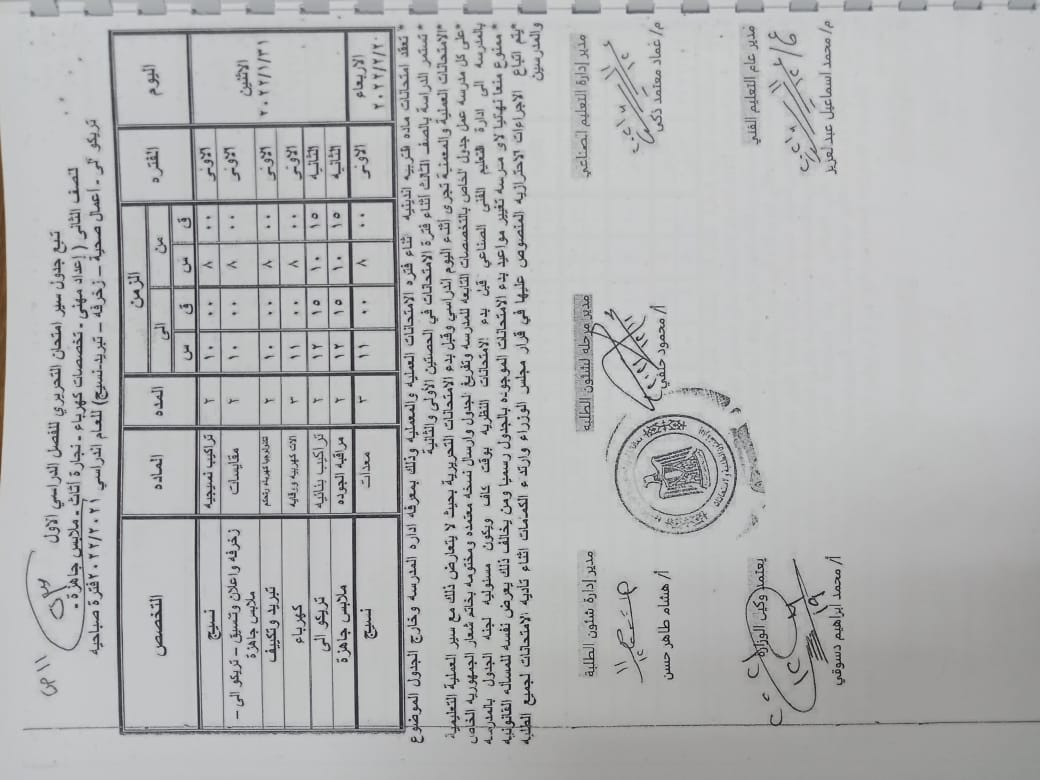 تبع جدول سير امتحان التحريري للفصل الدراسي الاول
للصف الثاني (إعداد مهنى - تخصصات كهرباء - نجارة اثاث - ملابس جاهزة -
تريكو آلى - اعمال صحية - زخرفه - تبريد - نسيج) للعام الدراسي ٢٠٢٢/٢٠٢١ فترة صباحيه
اليوم الفتره الزمن المده الماده التخصص
من الى
ق س ق س
الاثنين ٢٠٢٢/١/٣١ الاولى ٠٠ ٨ ٠٠ ١٠ ٢ تراكيب نسيجيه نسيج
الاولى ٠٠ ٨ ٠٠ ١٠ ٢ مقايسات زخرفه واعلان وتنسيق - تريكو الى - ملابس جاهزة
الاولى ٠٠ ٨ ٠٠ ١٠ ٢ تبريد وتكييف
الاولى ٠٠ ٨ ٠٠ ١١ ٣ الات كهربيه ووقايه كهرباء
الثانيه ١٥ ١٠ ١٥ ١٢ ٢ تراكيب بنائيه تريكو الى
الثانيه ١٥ ١٠ ١٥ ١٢ ٢ مراقبه الجوده ملابس جاهزة
الاربعاء ٢٠٢٢/٢/٢ الاولى ٠٠ ٨ ٠٠ ١١ ٣ معدات نسيج
* تعقد امتحانات ماده التربيه الدينيه اثناء فتره الامتحانات العمليه والمعمليه وذلك بمعرفه اداره المدرسه وخارج الجدول الموضوع
* تستمر الدراسة بالصف الثالث أثناء فترة الامتحانات في الحصتين الأولى والثانية
*الامتحانات العملية والمعملية تجرى أثناء اليوم الدراسي وقبل بدء الامتحانات التحريرية بحيث لا يتعارض ذلك مع سير العملية التعليمية
*على كل مدرسه عمل جدول الخاص بالتخصصات التابعه للمدرسه وتفريغ الجدول وارسال نسخه معتمده ومختومه بخاتم شعار الجمهوريه الخاص
بالمدرسه الى ادارة التعليم الفنى الصناعي قبل بدء الامتحانات النظريه بوقت كاف ويكون مسئوليه لجنه الجدول بالمدرسه
* ممنوع منعا نهائيا لاى مدرسه تغيير مواعيد بدء الامتحانات الموجوده بالجدول رسميا ومن يخالف ذلك يعرض نفسه للمساله القانونيه
*يتم اتباع الاجراءات الاحترازيه المنصوص عليها في قرار مجلس الوزراء وارتداء الكمامات اثناء تاديه الامتحانات لجميع الطلبه
والمدرسين
مدير إدارة شئون الطلبة مدير مرحله لشئون الطلبه مدير إدارة التعليم الصناعي
أ/ هشام طاهر حسن أ/ محمود حلفي م/ عماد معتمد ذكى
يعتمد وكيل الوزارة مدير عام التعليم الفني
أ/ محمد ابراهيم دسوقي م/ محمد اسماعيل عبد العزيز